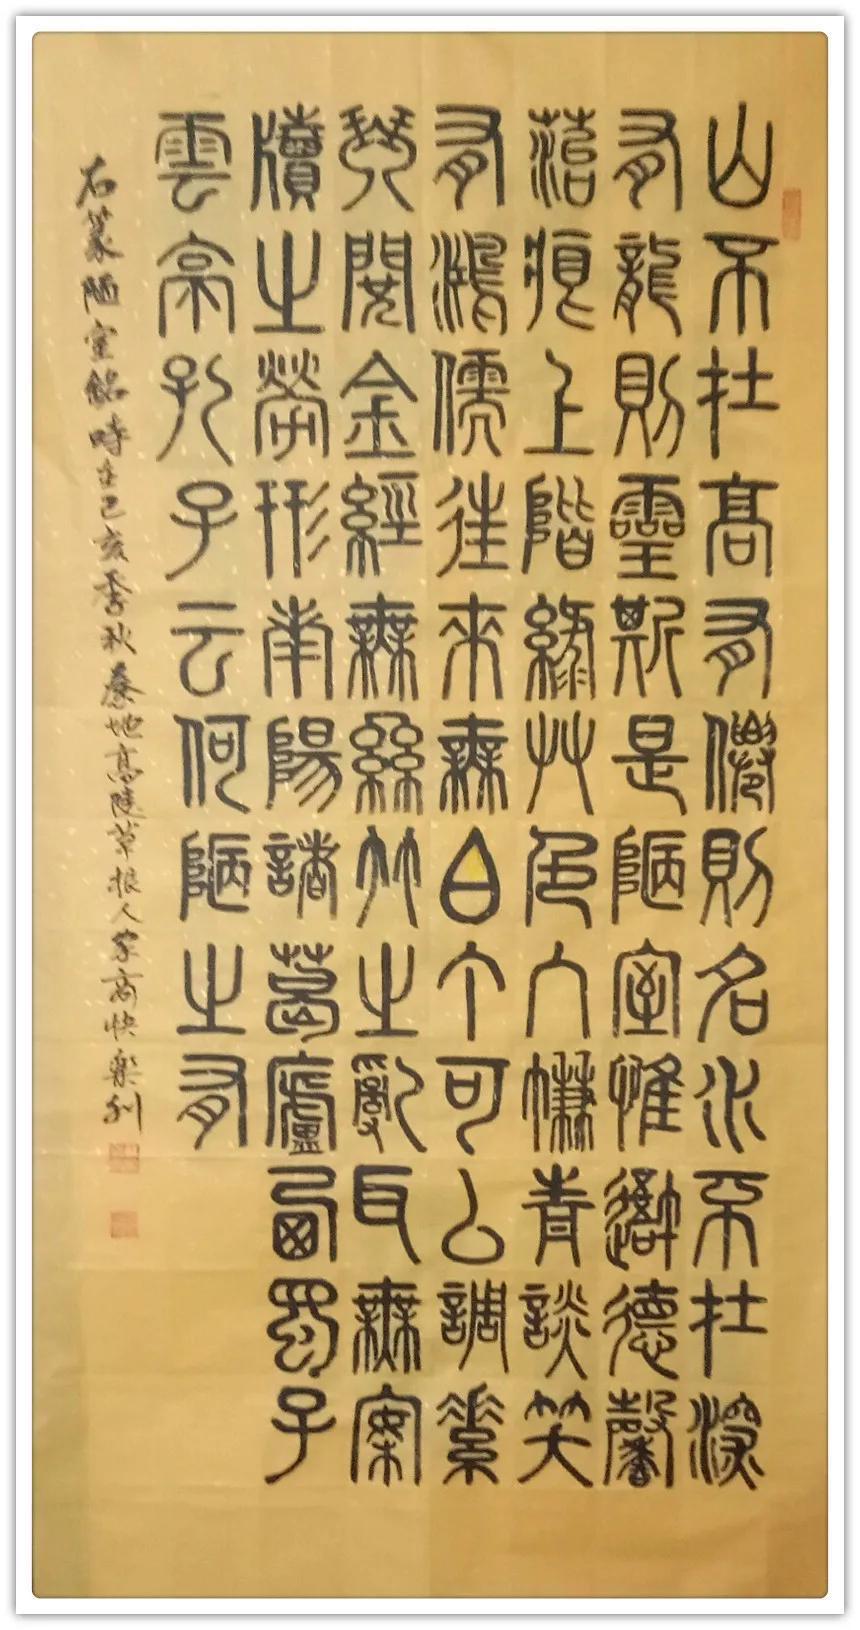 山不在高有僊則名水不在深
有龍則靈斯是陋室惟吾德馨
菭痕上階綠艸色入簾青談笑
有鴻儒往來無白丁可以調素
琴閱金經無絲竹之亂耳無案
牘之勞形南陽諸葛廬西蜀子
雲亭孔子云何陋之有
右篆陋室銘時在己亥季秋秦地高陵草根人家商快樂